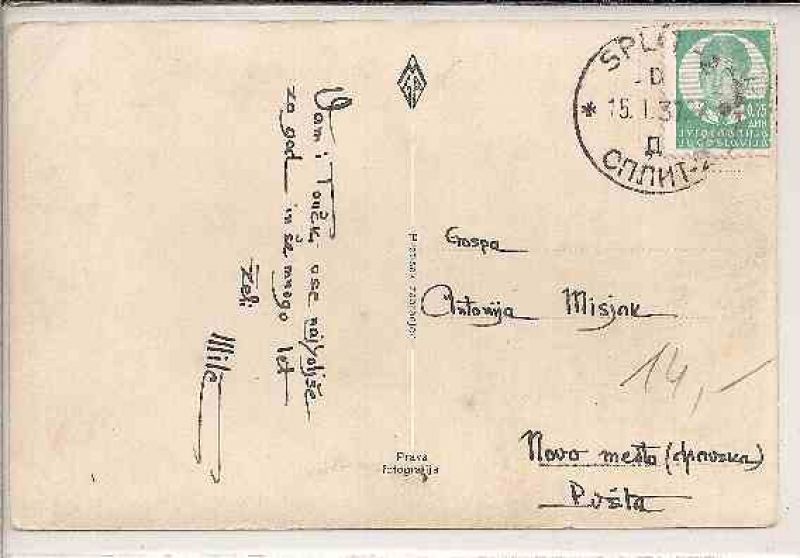 Vam i Tončki vse najboljše
za god in še mnogo let
želi
Mile
Pretisak zabranjen
Prava
fotografija
SPLIT
D
* 15. I. 37
Д
СПЛИТ-2
0,75
ДИН
ЈУГОСЛАВИЈА
JUGOSLAVIJA
Gospa
Antonija Misjak
14,-
Novo mesto (dravska)
Pošta